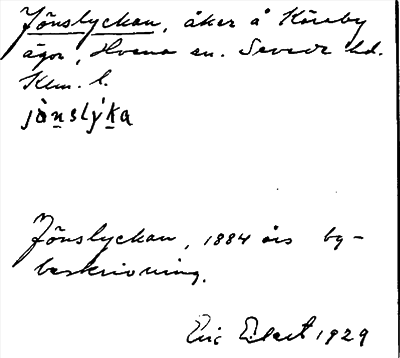 Jönslyckan, åker å Kåreby
ägor, Hvena sn. Sevede hd.
Klm. l.
jö̀nslýka
Jönslyckan, 1884 års by-
beskrivning.
Eric 1929